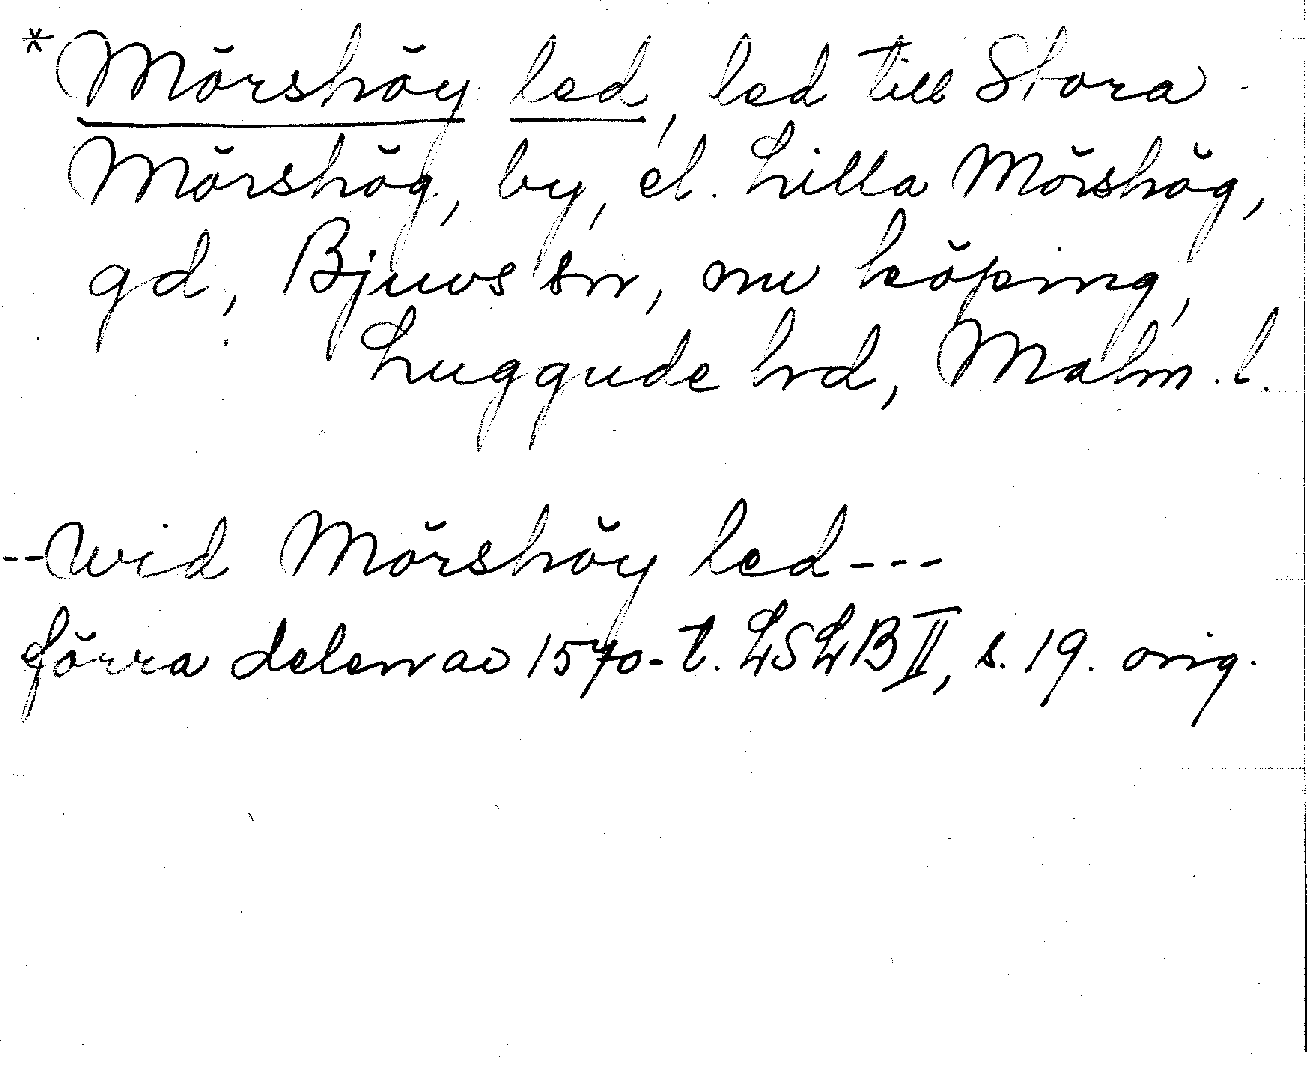 *Mörshöy led, led till Stora
Mörshög, by, el. Lilla Mörshög,
gd, Bjuvs sn, nu köping,
Luggude hd, Malm. l.
--wid Mörshöy led---
förra delen av 1570-t. LSLB II, s. 19. orig.